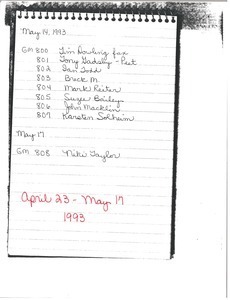 May 14, 1993
GM 800 Tim Dowling fax
801 Tony Godsey - Pest
802 Ian Todd
803 Breck M.
804 Mark Reiter
805 Suzee Bailey
806 John Macklin
807 Karsten Solheim
May 17
GM 808 Niki Taylor
April 23 - May 17
1993